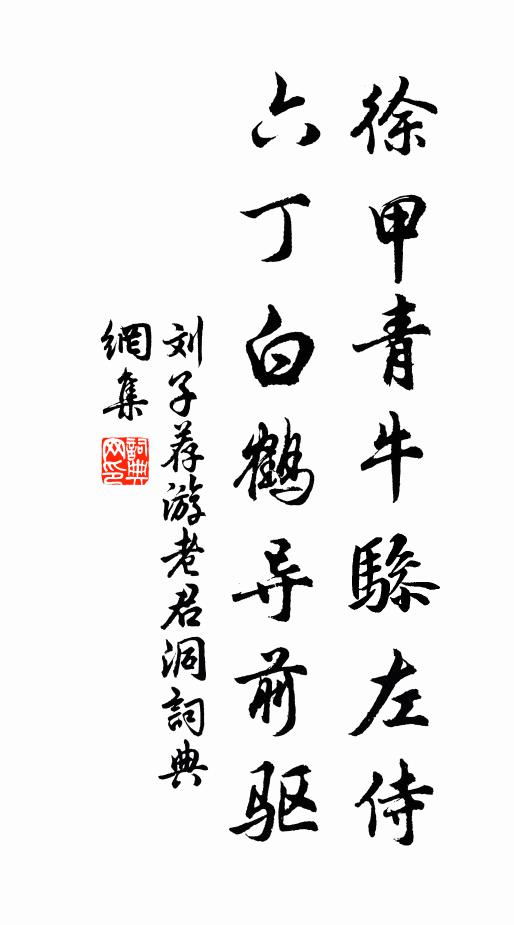 徐甲青牛驂左侍
六丁白鹤导前驱
刘子荐游老君洞詞典
網集
詞典
网印